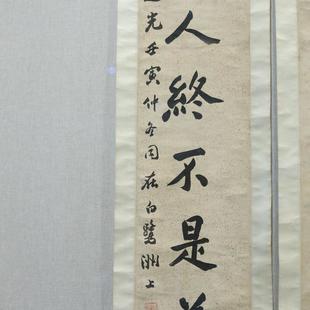 人終不是
光壬寅仲冬同在白鷺洲上